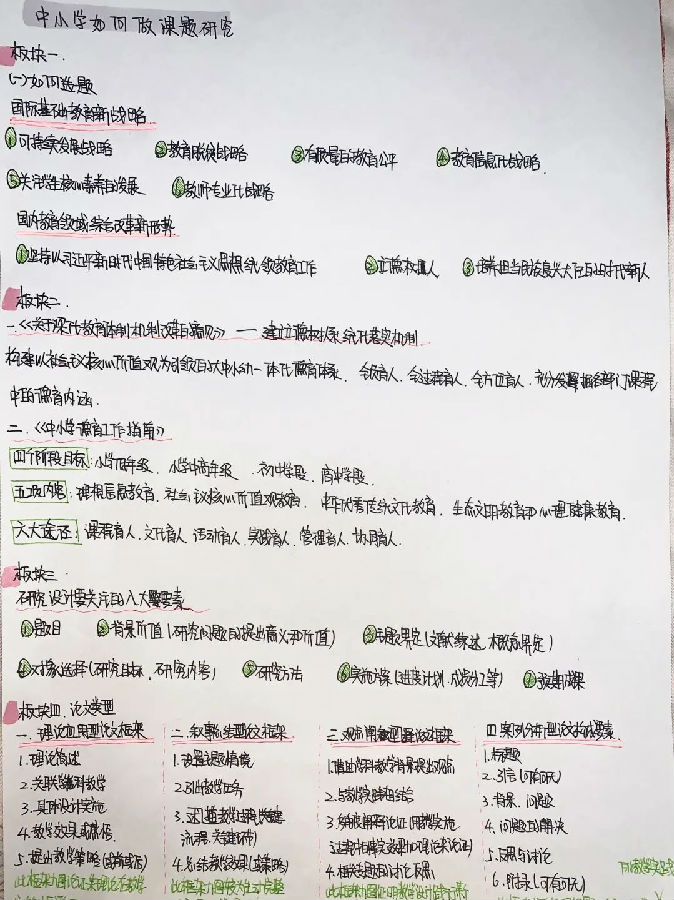 中小学如何做课题研究
板块一.
(一)如何选题
国际基础教育新战略
①可持续发展战略 ②教育优先战略 ③有质量的教育公平 ④教育信息化战略.
⑤关注学生核心素养的发展 ⑥教师专业化战略
国内教育领域综合改革新形势
①坚持以习近平新时代中国特色社会主义思想统领教育工作 ②立德树人 ③培养担当民族复兴大任的时代新人
板块二.
一.《关于深化教育体制机制改革的意见》—— 建立德树人系统化落实机制
构建以社会主义核心价值观为引领的大中小幼一体化德育体系. 全员育人、全过程育人、全方位育人, 充分发掘各部门课程
中的德育内涵.
二.《中小学德育工作指南》
四个阶段目标: 小学低年级、小学中高年级、初中学段、高中学段.
五项内容: 理想信念教育、社会主义核心价值观教育、中华优秀传统文化教育、生态文明教育和心理健康教育.
六大途径: 课程育人、文化育人、活动育人、实践育人、管理育人、协同育人.
板块三.
研究设计要关注的八大要素
①题目 ②背景价值(研究问题的提出意义和价值) ③课题界定(文献综述、概念界定)
④对象选择(研究目标、研究内容) ⑤研究方法 ⑥实施方案(进度计划、成员分工等) ⑦预期成果
板块四. 论文类型
一. 理论应用型论文框架 二. 叙事派生型论文框架 三. 观点阐释型论文框架 四.案例分析型论文构成要素.
1.理论简述 1.设置主题情境 1.借由学科教学背景提出观点 1.标题
2.关联学科教学 2.引出教学任务 2.与教学建立结合 2.引言(可有可无)
3.具体设计实施 3.还原教学过程(关键 3.背景、问题
4.教学效果或价值. 流程、关键环节) 4.问题的解决
5.提出教学策略(或有或无) 4.总结教学效果(或策略) 4.相关主题的讨论反思 5.反思与讨论
6.附录(可有可无)